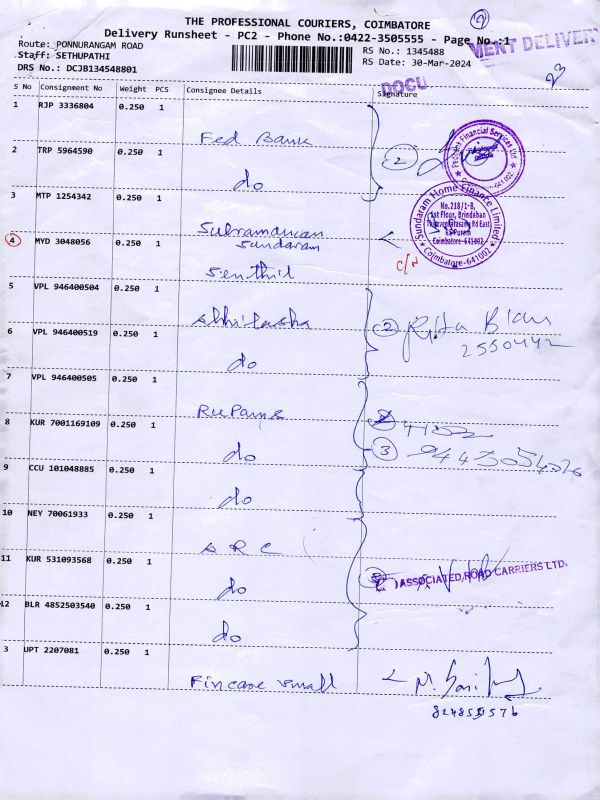 THE PROFESSIONAL COURIERS, COIMBATORE
Delivery Runsheet - PC2 - Phone No.:0422-3505555 - Page No.:1
Route: PONNURANGAM ROAD
Staff: SETHUPATHI
DRS No.: DCJB134548801
RS No.: 1345488
RS Date: 30-Mar-2024
MENT DELIVERY
DOCU
23
S No Consignment No Weight PCS Consignee Details Signature
1 RJP 3336804 0.250 1
Fed Bank
2 TRP 5964590 0.250 1
do
2
Fedbank Financial Services Ltd
Coimbatore-641002
3 MTP 1254342 0.250 1
Subramanian
Sundaram
Sundaram Home Finance Limited
No.218/1-B,
1st Floor, Brindaban
R.S.Puram
Coimbatore-641002
Coimbatore-641002
4 MYD 3048056 0.250 1
Senthil
C/N
5 VPL 946400504 0.250 1
Abhilasha
6 VPL 946400519 0.250 1
do
2
2550442
7 VPL 946400505 0.250 1
RuPams
8 KUR 7001169109 0.250 1
do
3
9 CCU 101048885 0.250 1
do
10 NEY 70061933 0.250 1
A R C
11 KUR 531093568 0.250 1
do
ASSOCIATED ROAD CARRIERS LTD.
12 BLR 4852503540 0.250 1
do
3 UPT 2207081 0.250 1
Fincare small